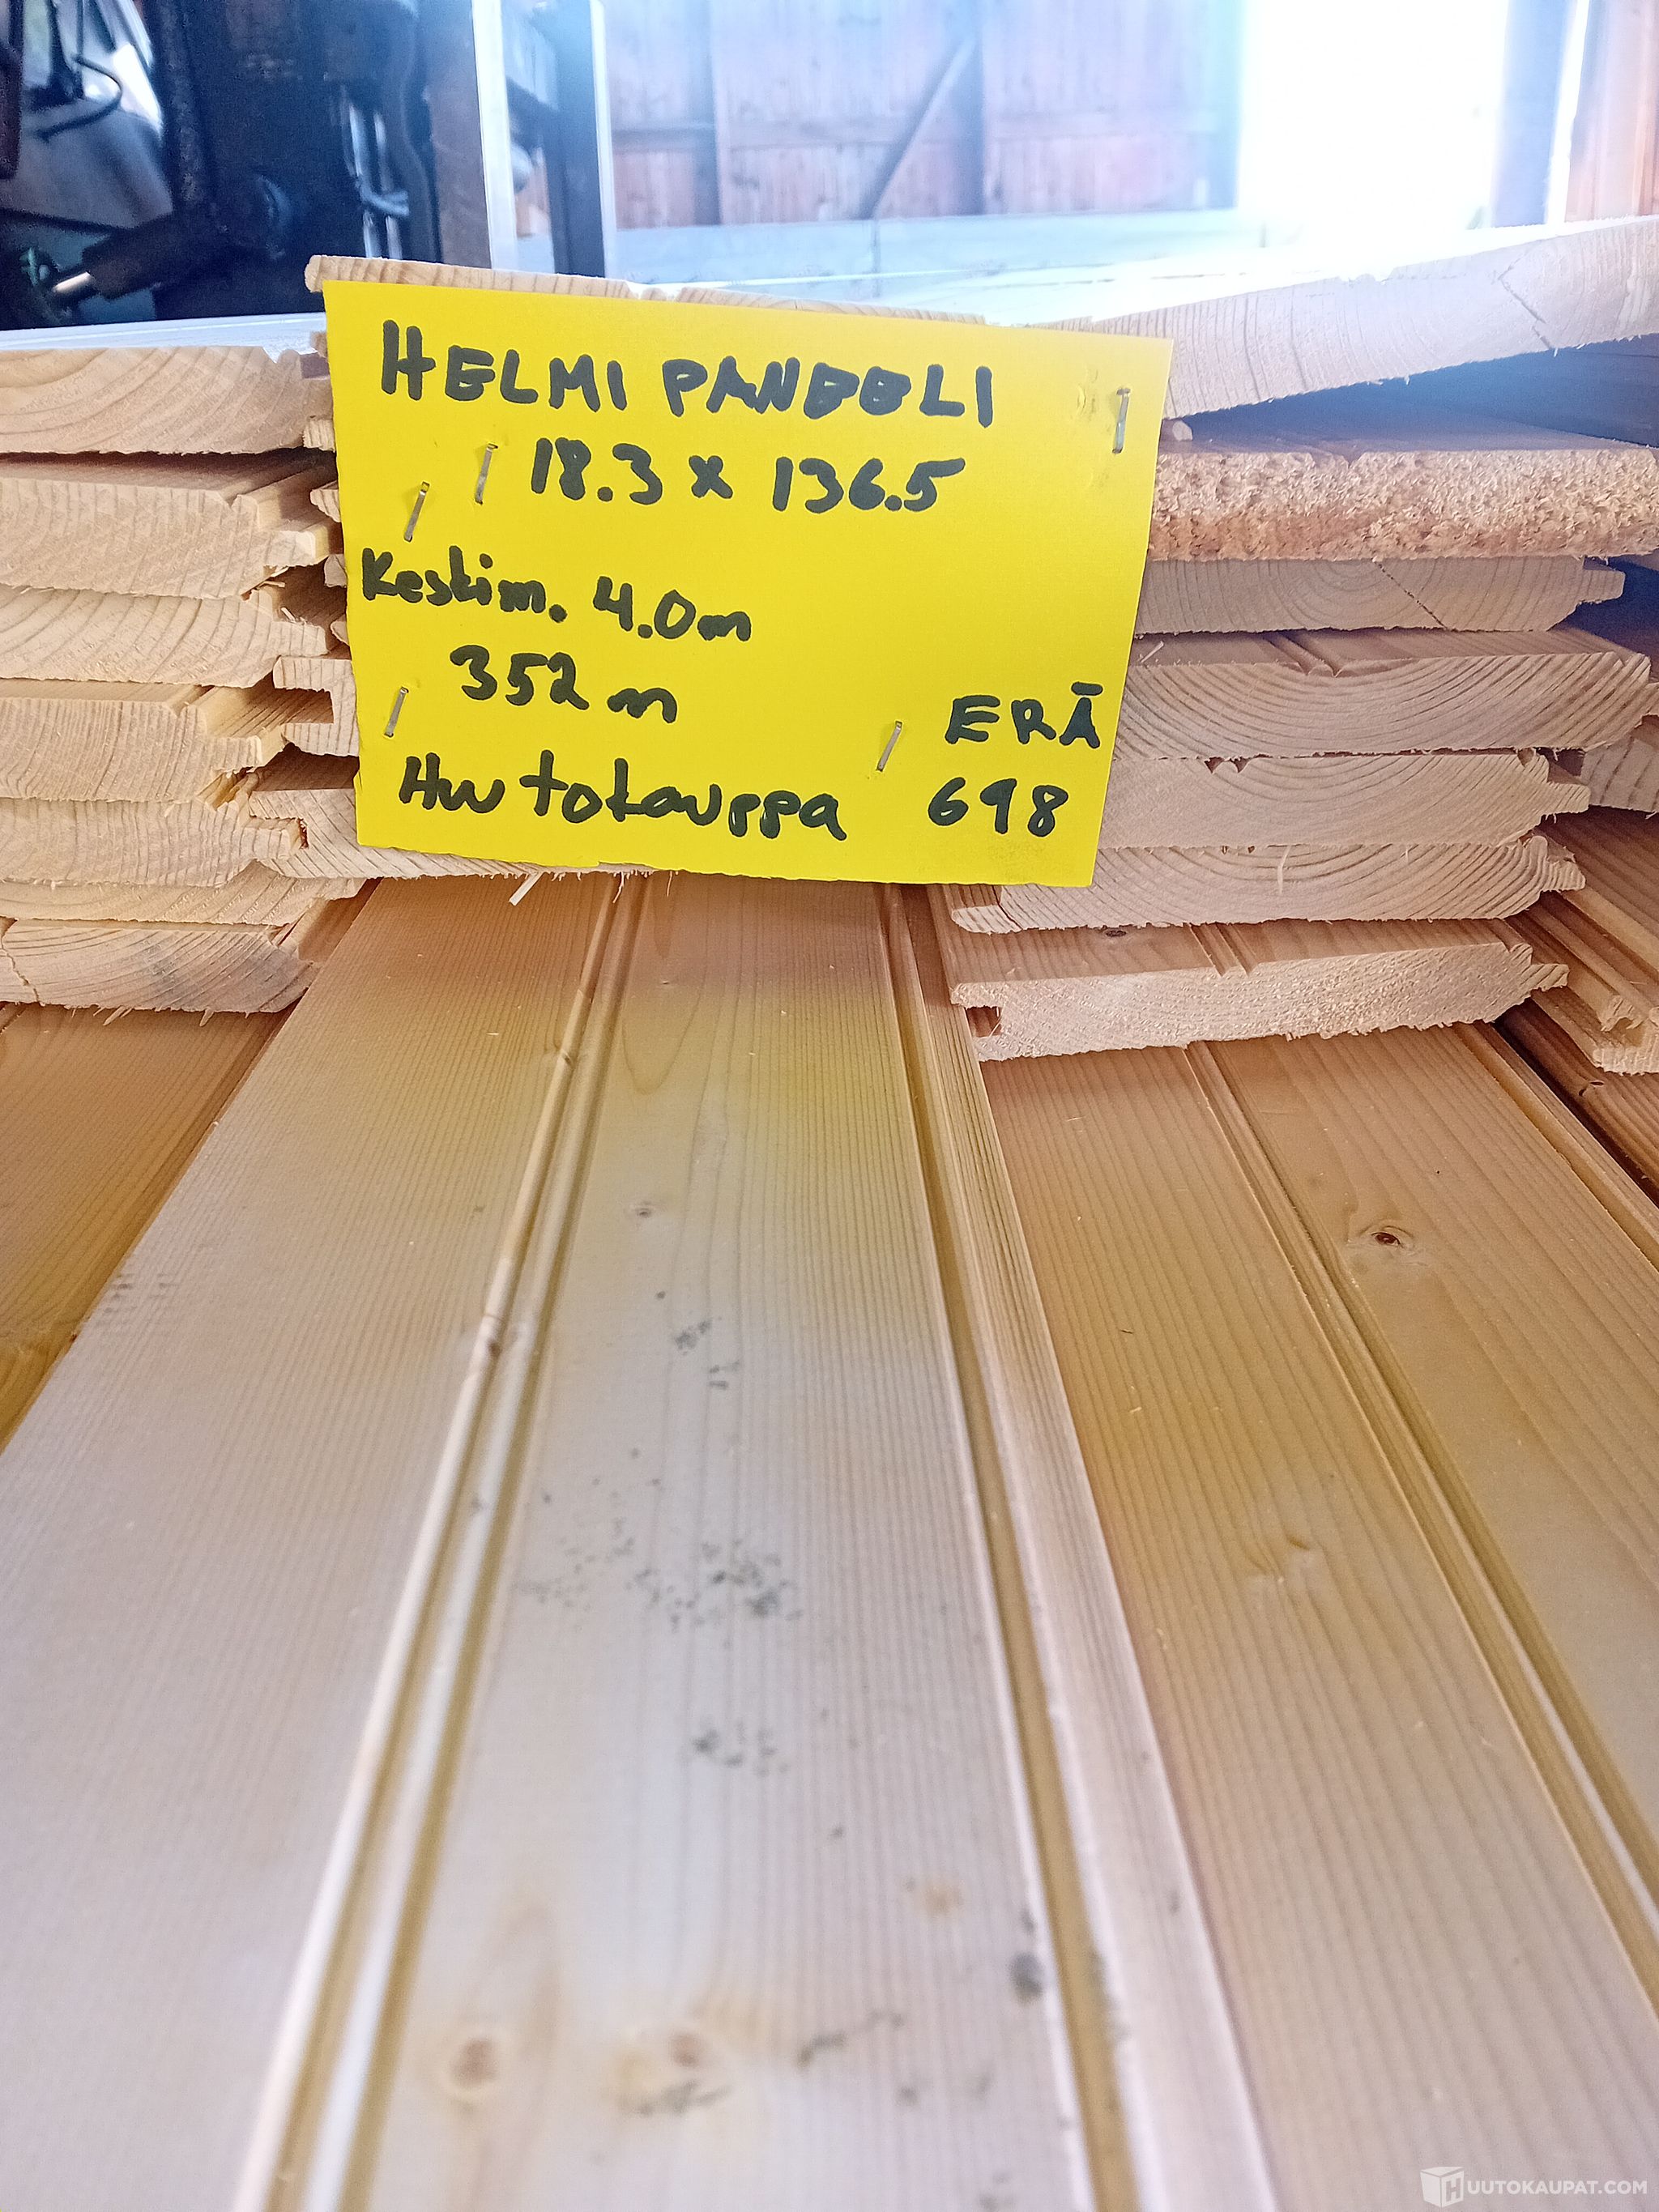 HELMI PANEELI
18.3 x 136.5
Keskim. 4.0m
352 m
ERÄ
Huutokauppa 698
HUUTOKAUPAT.COM